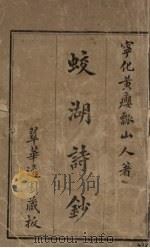 寧化黃癭瓢山人著
蛟湖詩鈔
翠華
藏板